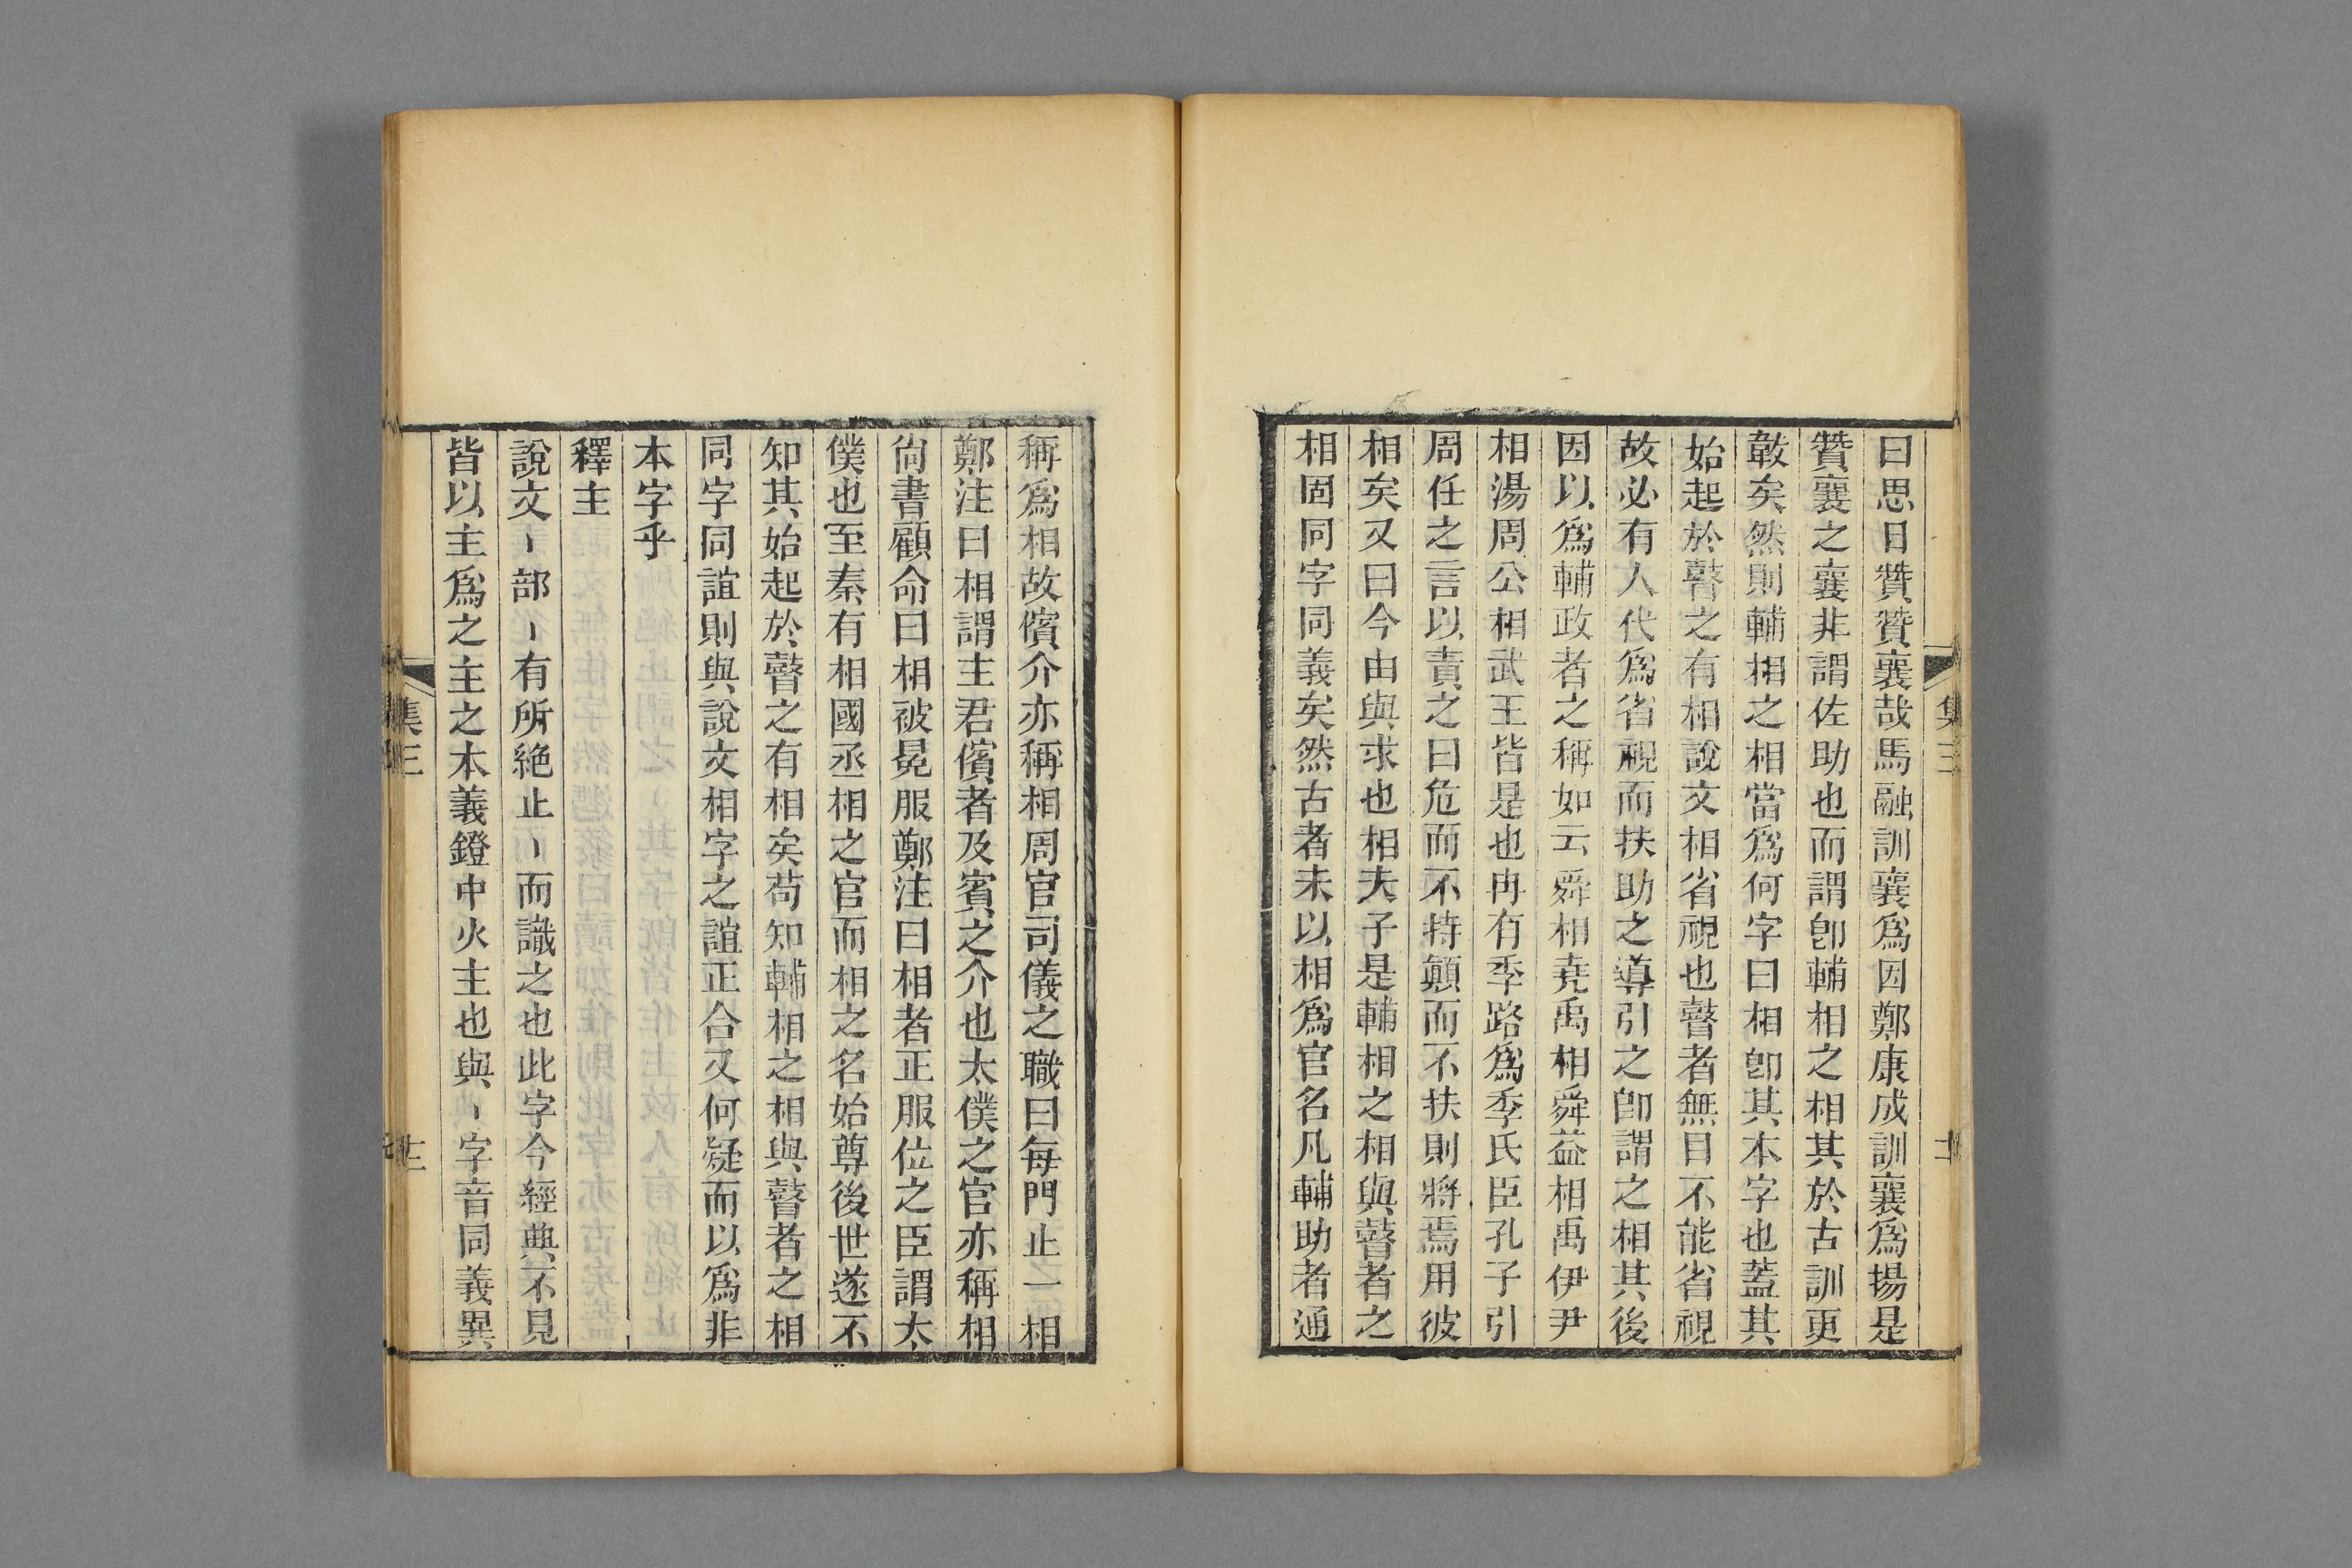 曰思日贊贊襄哉馬融訓襄爲因鄭康成訓襄爲揚是
贊襄之襄非謂佐助也而謂卽輔相之相其於古訓更
㪟矣然則輔相之相當爲何字曰相卽其本字也蓋其
始起於瞽之有相說文相省視也瞽者無目不能省視
故必有人代爲省視而扶助之導引之卽謂之相其後
因以爲輔政者之稱如云舜相堯禹相舜益相禹伊尹
相湯周公相武王皆是也冉有季路爲季氏臣孔子引
周任之言以責之曰危而不持顚而不扶則將焉用彼
相矣又曰今由與求也相夫子是輔相之相與瞽者之
相固同字同義矣然古者未以相爲官名凡輔助者通
集三
稱爲相故儐介亦稱相周官司儀之職曰每門止一相
鄭注曰相謂主君儐者及賓之介也太僕之官亦稱相
尙書顧命曰相被冕服鄭注曰相者正服位之臣謂太
僕也至秦有相國丞相之官而相之名始尊後世遂不
知其始起於瞽之有相矣苟知輔相之相與瞽者之相
同字同誼則與說文相字之誼正合又何疑而以爲非
本字乎
釋主
說文丶部丶有所絶止丶而識之也此字今經典不見
皆以主爲之主之本義鐙中火主也與丶字音同義異
集三